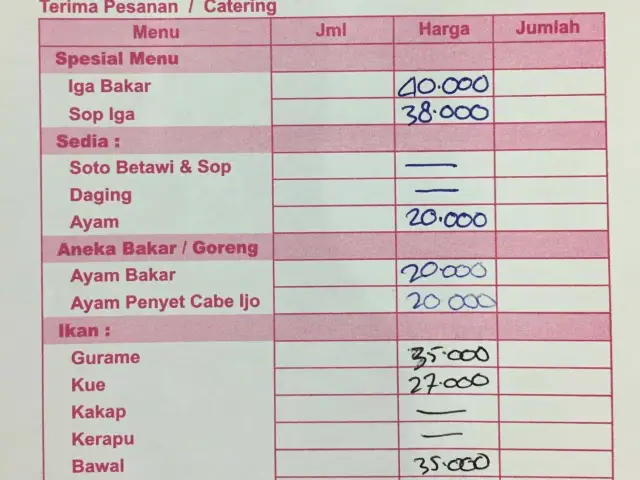 Terima Pesanan / Catering
Menu Jml Harga Jumlah
Spesial Menu
Iga Bakar 40.000
Sop Iga 38.000
Sedia :
Soto Betawi & Sop —
Daging —
Ayam 20.000
Aneka Bakar / Goreng
Ayam Bakar 20.000
Ayam Penyet Cabe Ijo 20 000
Ikan :
Gurame 35.000
Kue 27.000
Kakap —
Kerapu —
Bawal 35.000